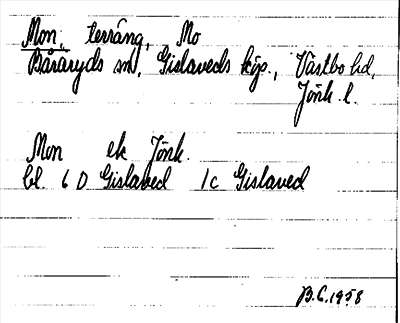 Mon, terräng, Mo
Båraryds sn, Gislaveds köp., Västbo hd,
Jönk. l.
Mon ek Jönk.
bl. 6 D Gislaved 1c Gislaved
B.G. 1958